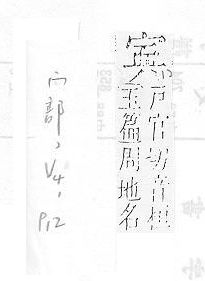 戸官切音桓
玉篇周地名
宀部,
V4,
P12